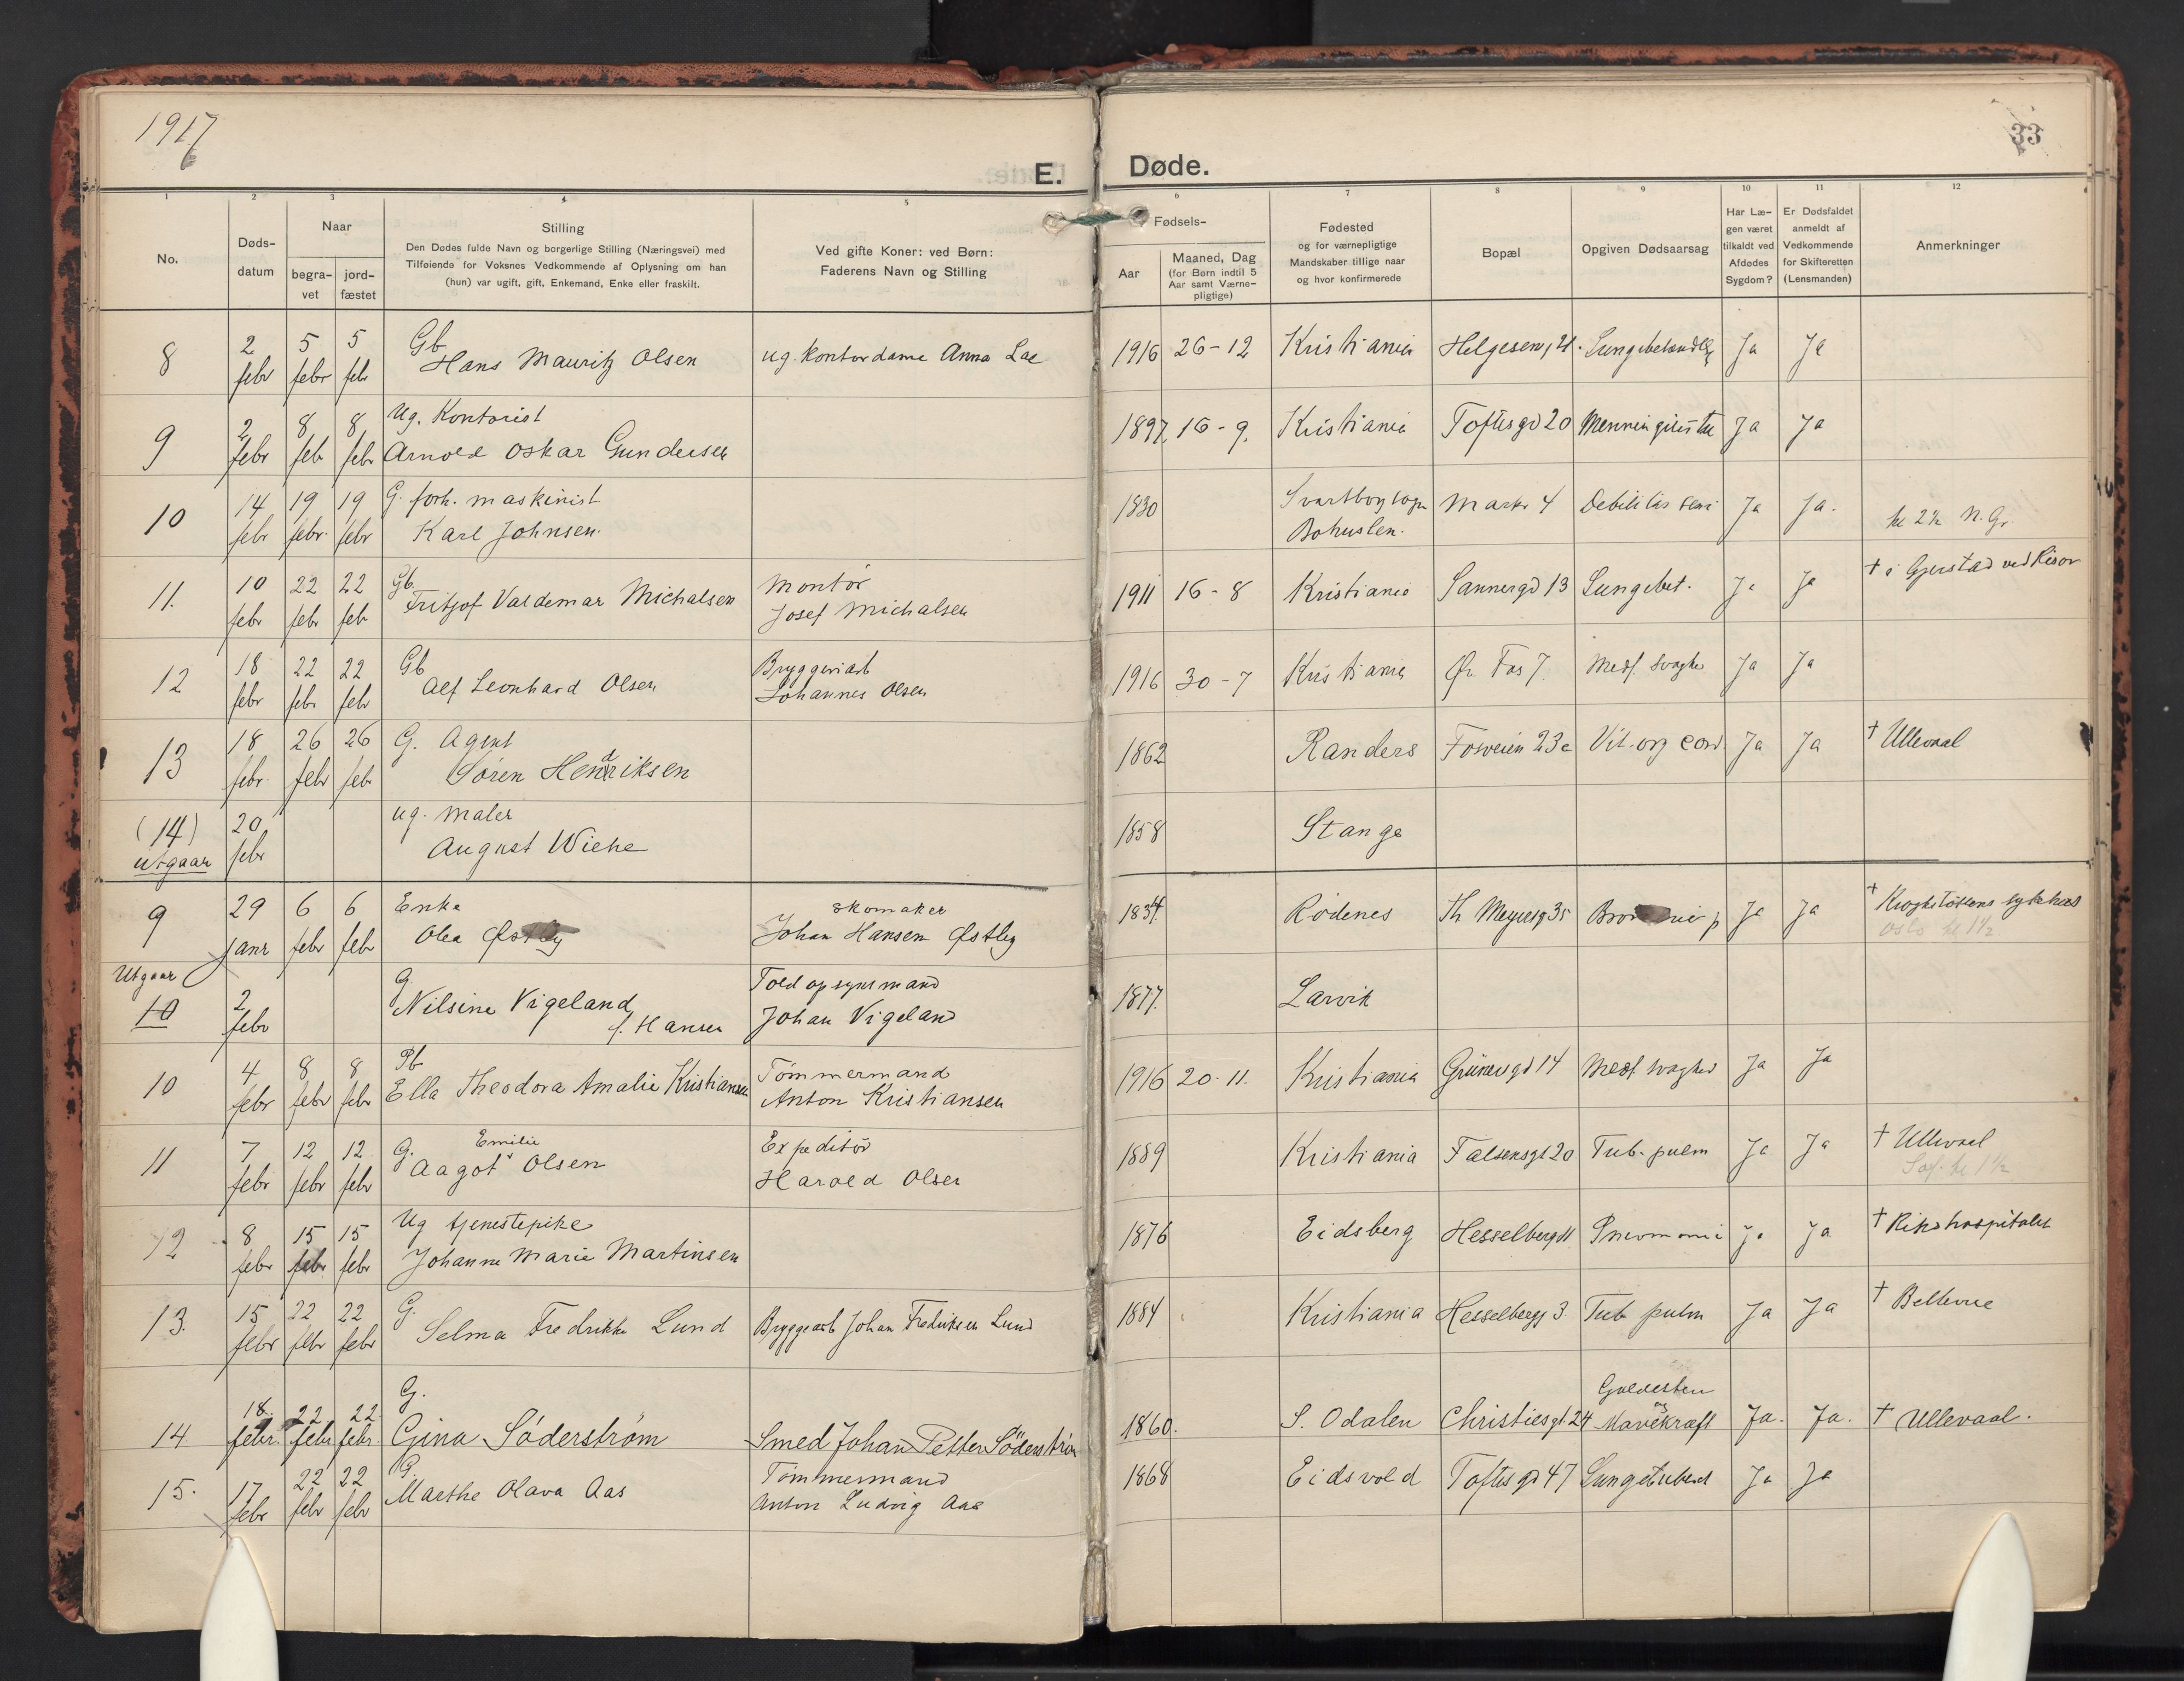 1917
33
E. Døde.
1 2 3 4 5 6 7 8 9 10 11 12
No.
Døds-
datum
Naar
begra-
vet
jord-
fæstet
Stilling
Den Dødes fulde Navn og borgerlige Stilling (Næringsvei) med
Tilføiende for Voksnes Vedkommende af Oplysning om han
(hun) var ugift, gift, Enkemand, Enke eller fraskilt.
Ved gifte Koner: ved Børn:
Faderens Navn og Stilling
Fødsels-
Aar
Maaned, Dag
(for Børn indtil 5
Aar samt Værne-
pligtige)
Fødested
og for værnepligtige
Mandskaber tillige naar
og hvor konfirmerede
Bopæl
Opgiven Dødsaarsag
Har Læ-
gen været
tilkaldt ved
Afdødes
Sygdom?
Er Dødsfaldet
anmeldt af
Vedkommende
for Skifteretten
(Lensmanden)
Anmerkninger
8 2 febr 5 febr 5 febr Gb
Hans Mauritz Olsen ug. kontordame Anna Lae 1916 26-12 Kristiania Ja Ja
9 2 febr 8 feb 8 febr Ug. Kontorist
Arnold Oskar Gundersen 1897 16-9. Kristiania Toftesgd 20 Ja Ja
10 14 febr 19 febr. 19 febr G. forh. maskinist
Karl Johnsen. 1830 Bohuslen. Mark 4 Ja Ja.
11. 10 febr 22 febr 22 feb Gb.
Fritjof Valdemar Michalsen Montør
Josef Michalsen 1911 16-8 Kristiania Sannergd 13 Lungebet. Ja Ja † i Gjerstad ved Risør
12 18 febr 22 febr 22 febr Gb
Alf Leonhard Olsen Bryggeriarb
Johannes Olsen 1916 30-7 Kristiania Øv. Fos 7. Medf. svaghe Ja Ja
13 18 febr. 26 febr 26 febr G. Agent
Søren Hendriksen 1862 Randers Fosveien 23a Vit. org cord Ja Ja † Ullevaal
(14)
utgaar 20 febr ug. maler
August Wiehe 1858 Stange
9 29 janr 6 febr 6 febr Enke
Olea Østby skomaker
Johan Hansen Østby 1834. Rødenes Th Meyersg 35 Ja Ja † Krogstøttens sykehus
Oslo kl 1½
Utgaar
10 2 febr G.
Nilsine Vigeland
f. Hansen Toldopsynsmand
Johan Vigeland 1877. Larvik
10 4 febr 8 febr 8 febr Pb
Ella Theodora Amalie Kristiansen Tømmermand
Anton Kristiansen 1916 20-11. Kristiania Grünersgd 14 Medf svaghed Ja Ja
11 7 febr 12 febr 12 febr G. Emilie
Aagot Olsen Expeditør
Harald Olsen 1889 Kristiania Falsensgt 20 Tub. pulm Ja Ja † Ullevaal
12 8 febr 15 febr 15 febr Ug tjenestepike
Johanne Marie Martinsen 1876 Eidsberg Hesselbergg 11 Pneumoni Ja Ja † Rikshospitalet
13. 15 febr 22 febr 22 febr G.
Selma Fredrikke Lund Byggearb Johan Fredriksen Lund 1884 Kristiania Hesselbergg 3 Tub pulm Ja Ja † Bellevue
14 18. febr. 22 febr 22 febr. G.
Gina Söderström Smed Johan Petter Söderström 1860. S. Odalen Christiesgt 24 Galdesten
og Mavekræft Ja. Ja. † Ullevaal.
15. 17 febr 22 febr 22 febr G.
Marthe Olava Aas Tømmermand
Anton Ludvig Aas 1868 Eidsvold Toftesgd 47 Lungetuberk Ja Ja